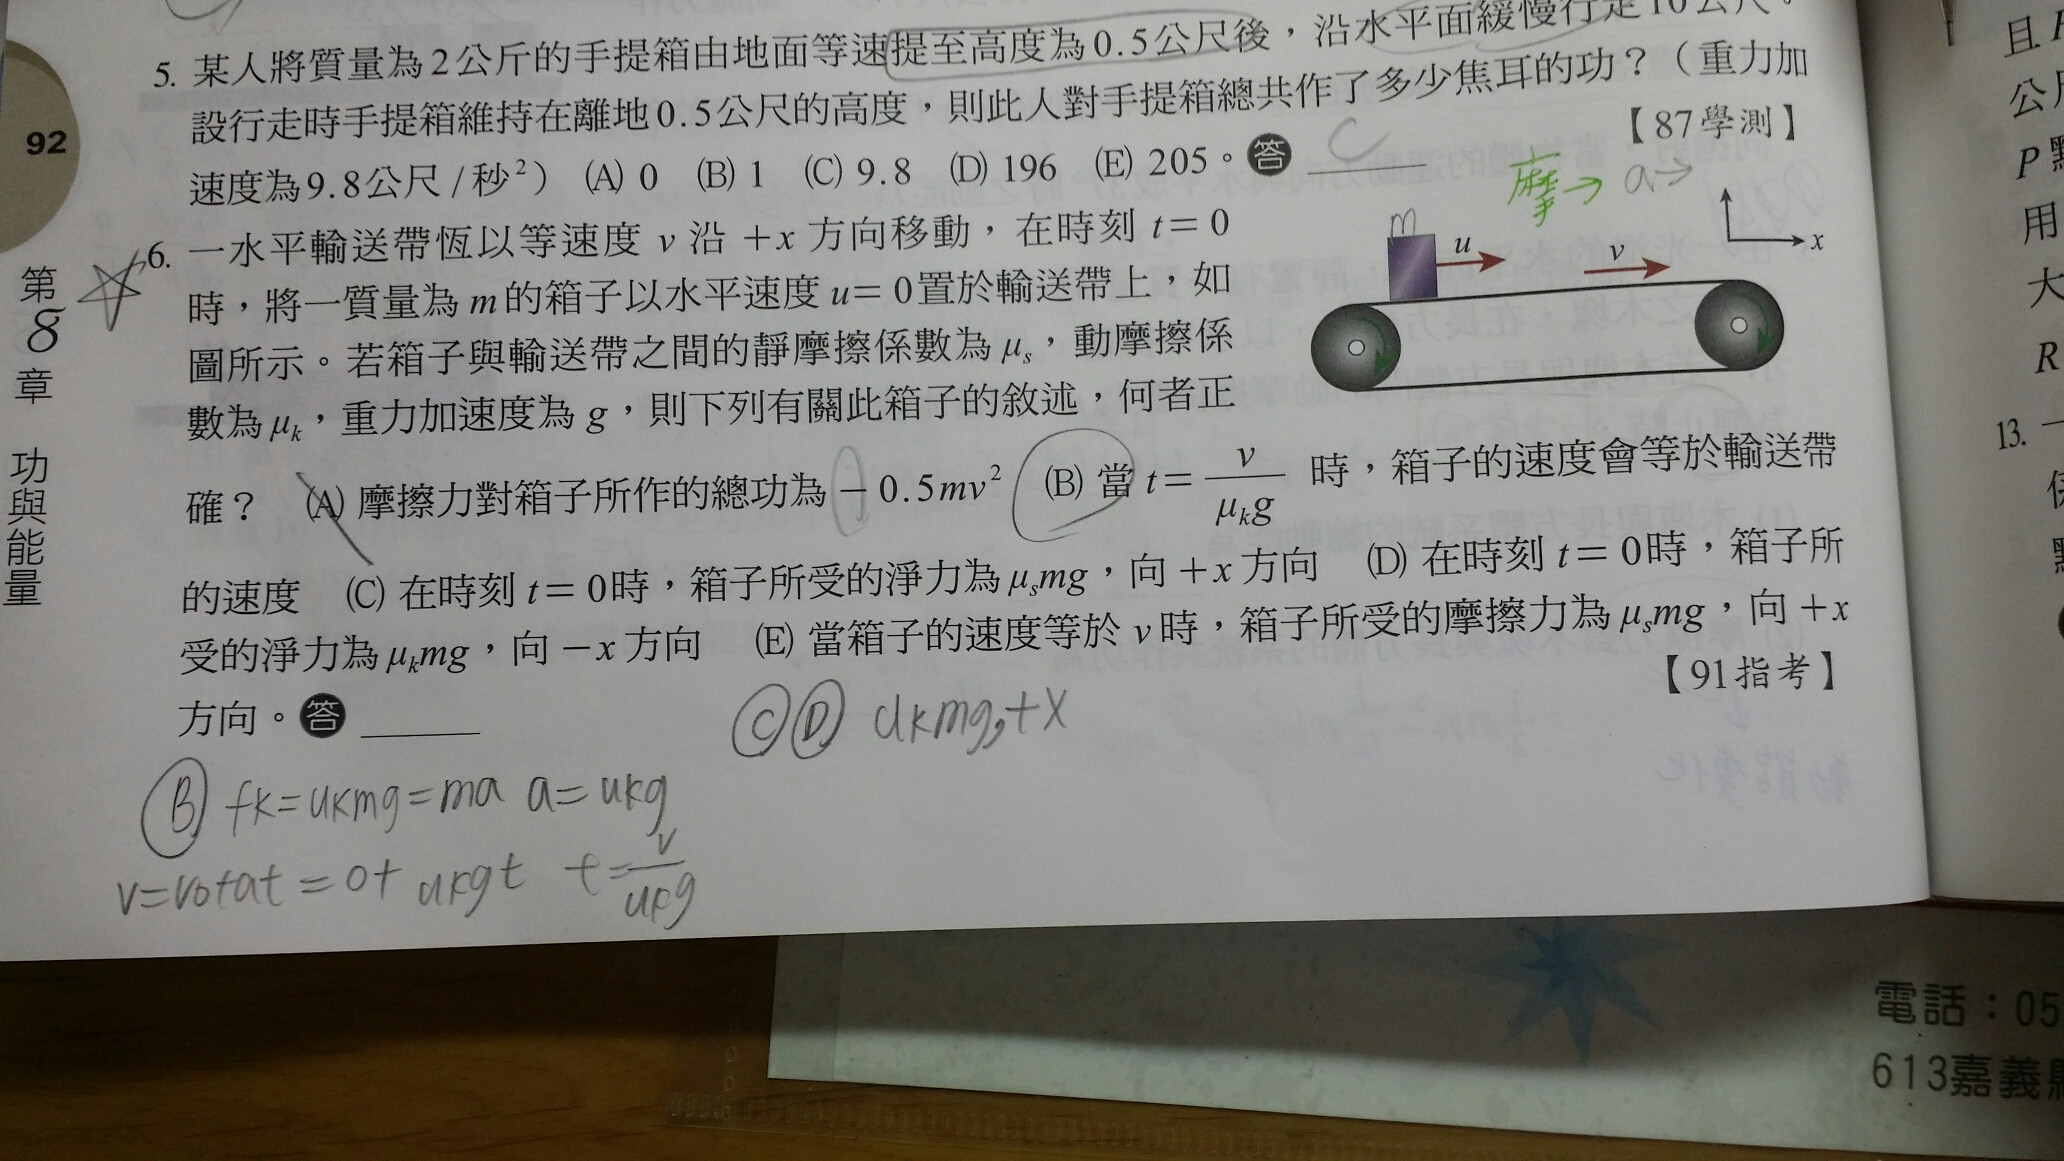 5. 某人將質量為2公斤的手提箱由地面等速提至高度為0.5公尺後，沿水平面緩慢行走10公尺。
設行走時手提箱維持在離地0.5公尺的高度，則此人對手提箱總共作了多少焦耳的功？（重力加
速度為9.8公尺/秒²） (A) 0 (B) 1 (C) 9.8 (D) 196 (E) 205。答 C
【87學測】
92
第8章 功與能量
摩→ a→
6. 一水平輸送帶恆以等速度 v 沿 +x 方向移動，在時刻 t=0
時，將一質量為 m 的箱子以水平速度 u=0置於輸送帶上，如
圖所示。若箱子與輸送帶之間的靜摩擦係數為 μs，動摩擦係
數為 μk，重力加速度為 g，則下列有關此箱子的敘述，何者正
確？ (A) 摩擦力對箱子所作的總功為 −0.5mv² (B) 當 t= v/μkg 時，箱子的速度會等於輸送帶
的速度 (C) 在時刻 t=0時，箱子所受的淨力為 μsmg，向 +x 方向 (D) 在時刻 t=0時，箱子所
受的淨力為 μkmg，向 −x 方向 (E) 當箱子的速度等於 v 時，箱子所受的摩擦力為 μsmg，向 +x
方向。答
【91指考】
m
u
v
x
C D ukmg,+x
B fk=ukmg=ma a=ukg
v=v0+at=0+ukgt t=v/ukg
且
公
P
用
大
R
13.
電話：05
613嘉義